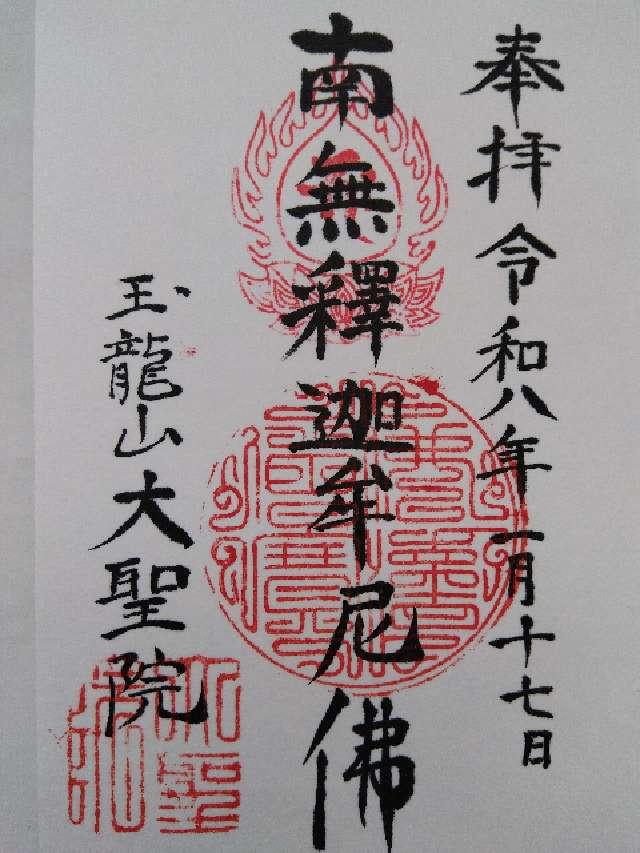 奉拝 令和八年一月十七日
南無釋迦牟尼佛
玉龍山大聖院